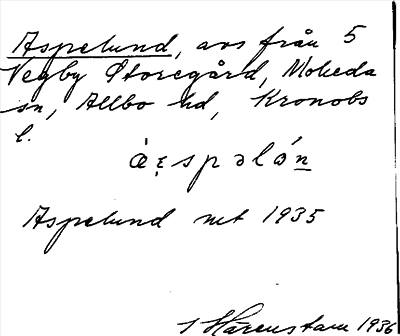 Aspelund, avs från 5
Vegby Storegård, Moheda
sn, Allbo hd, Kronobs
l.
àspəlón
Aspelund mt 1935
Harenstam 1936